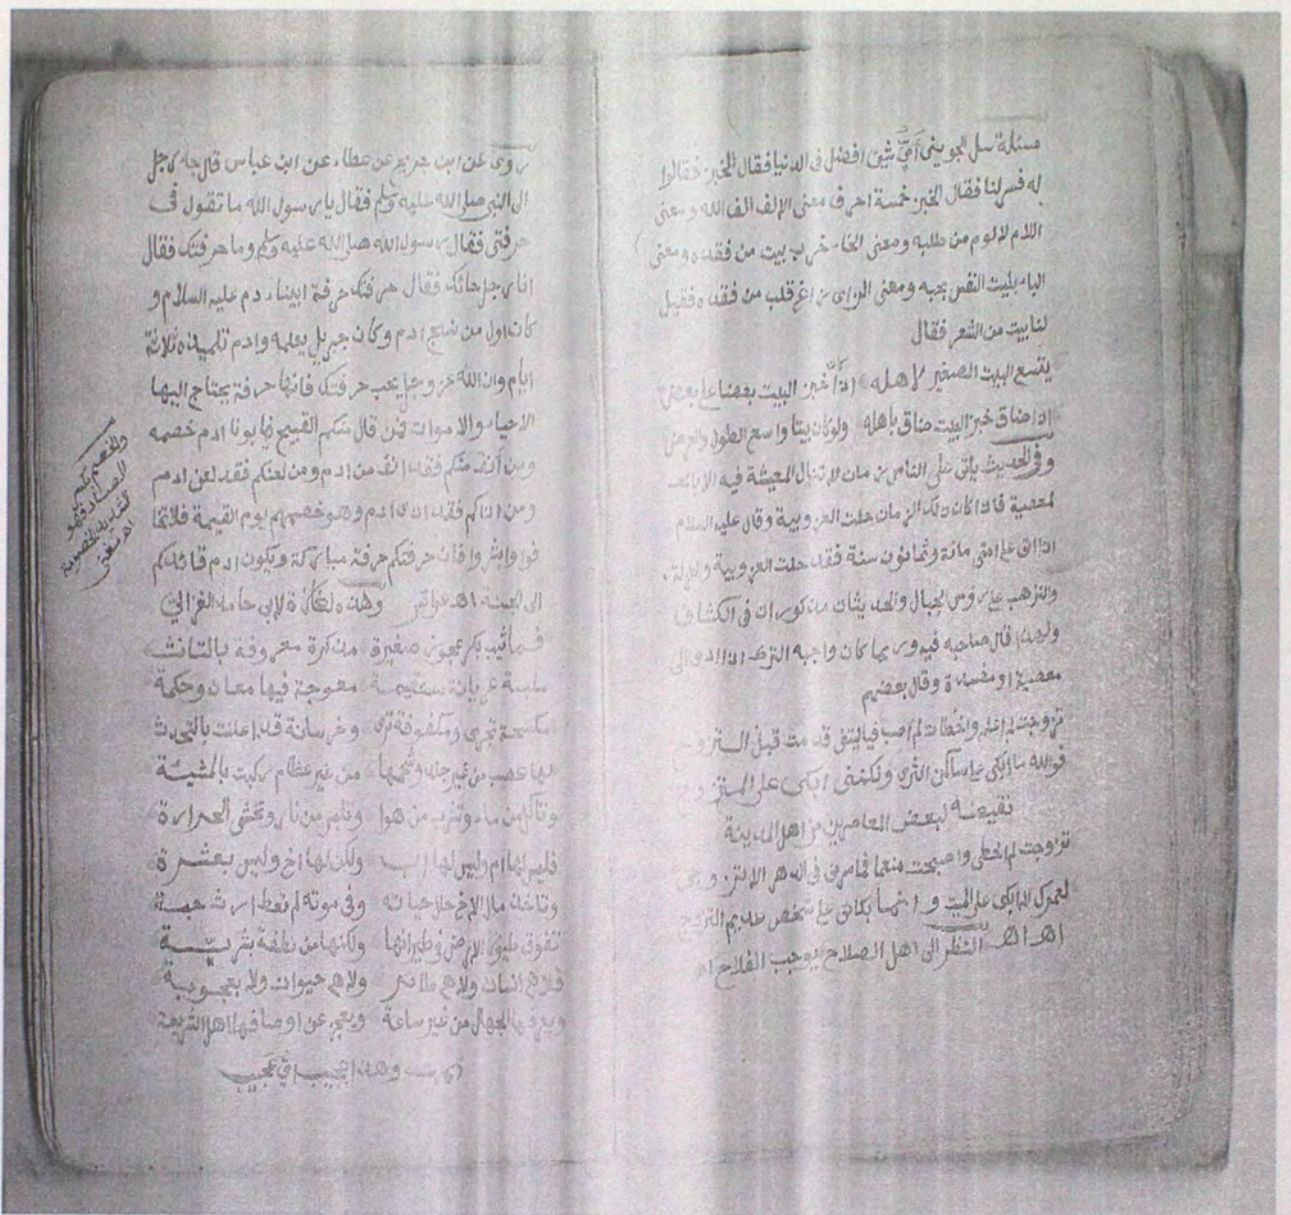 مسئلة سل الجويني أي شيئ افضل في الدنيا فقال الخبز فقالوا
له فسر لنا فقال الخبز خمسة احرف معنى الالف الف الله ومعنى
اللام لا لوم من طلبه ومعنى الخاء خرب بيت من فقده ومعنى
الباء بليت النفس بحبه ومعنى الزاي زاغ قلب من فقده فقيل
لنا بيت من الشعر فقال
يتسع البيت الصغير لاهله اذا خبز البيت بعضا على بعض
اذا ضاق خبز البيت ضاق باهله ولو كان بيتا واسع الطول والعرض
وفي الحديث يأتي على الناس زمان لا تنال المعيشة فيه الا
لمعصية فاذا كان ذلك الزمان حلت العزوبية وقال عليه السلام
اذا اتى على امتي مائة وثمانون سنة فقد حلت العزوبية والعزلة
والترهب على رؤس الجبال والحديثان مذكوران في الكشاف
ولهذا قال صاحبه فيه وربما كان واجبه الترك اذا ادى الى
معصية او مفسدة وقال بعضهم
تزوجت لم اعلم واخطات لم اصب فيا ليتني قد مت قبل التزوج
فوالله ما ابكي على ساكن الثرى ولكنني ابكي على المتزوج
نقيضه لبعض المعاصرين من اهل المدينة
تزوجت لم اخطي واصبحت منعما فما سرني في الدهر الا التزوج
لعمرك لا ابكي على الميت وانما بكائي على شخص عديم التزوج
اهـ النظر الى اهل الصلاح يوجب الفلاح اهـ
روى عن ابن جريج عن عطاء عن ابن عباس قال جاء رجل
الى النبي صلى الله عليه وسلم فقال يا رسول الله ما تقول في
حرفتي فقال رسول الله صلى الله عليه وسلم وما حرفتك فقال
انا رجل حائك فقال حرفتك حرفة ابينا ادم عليه السلام و
كان اول من نسج ادم وكان جبريل يعلمه وادم تلميذه ثلاثة
ايام وان الله عز وجل يحب حرفتك فانها حرفة يحتاج اليها
الاحياء والاموات فمن قال منكم القبيح فابونا ادم خصمه
ومن انف منكم فقد انف من ادم ومن لعنكم فقد لعن ادم
ومن اذاكم فقد اذى ادم وهو خصمهم يوم القيمة فلا تخا
فوا وابشروا فان حرفتكم حرفة مباركة ويكون ادم قائدكم
الى الجنة اهـ وهذه لابي حامد الغزالي
فما ثيب بكر عجوز صغيرة مذكرة معروفة بالتانث
عريانة مستقيمة معوجة فيها معان وحكمة
مكسحة تجري ومكفوفة ترى وخرسانة قد اعلنت بالتحدث
لها عصب من غير جلد من غير عظام ركبت بالمشيئة
وتاكل من ماء وتشرب من هوا من نار وتخشى الحرارة
فليس لها ام وليس لها اب ولكن لها اخ وليس بعشرة
وتاخذ مال الاخ حال حياته وفي موته لم تعط ارث
تفوق طيور الارض في طيرانها ولكنها من نطفة بشرية
فلا هي انسان ولا هي طائر ولا هي حيوان ولا
ويعرفها الجهال من غير ساعة ويعجز عن اوصافها اهل الشريعة
وهذا
والخصم بكسر
الصاد فهو